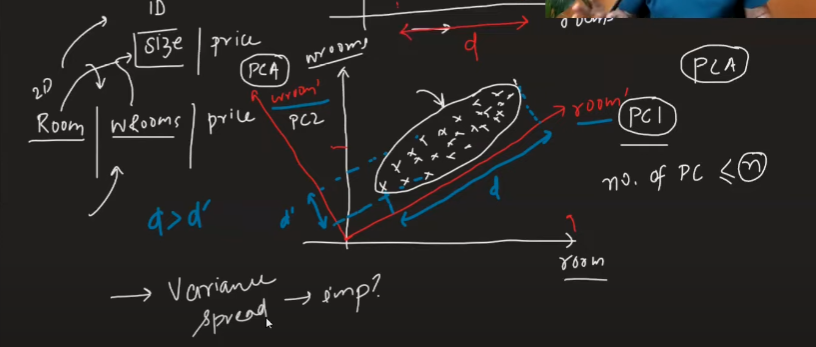 1D
size | price
2D
Room | WRooms | price
d
wrooms
PCA
wroom'
PC2
room'
PC1
PCA
no. of PC ≤ n
d
d'
d > d'
room
→ Variance → imp?
spread